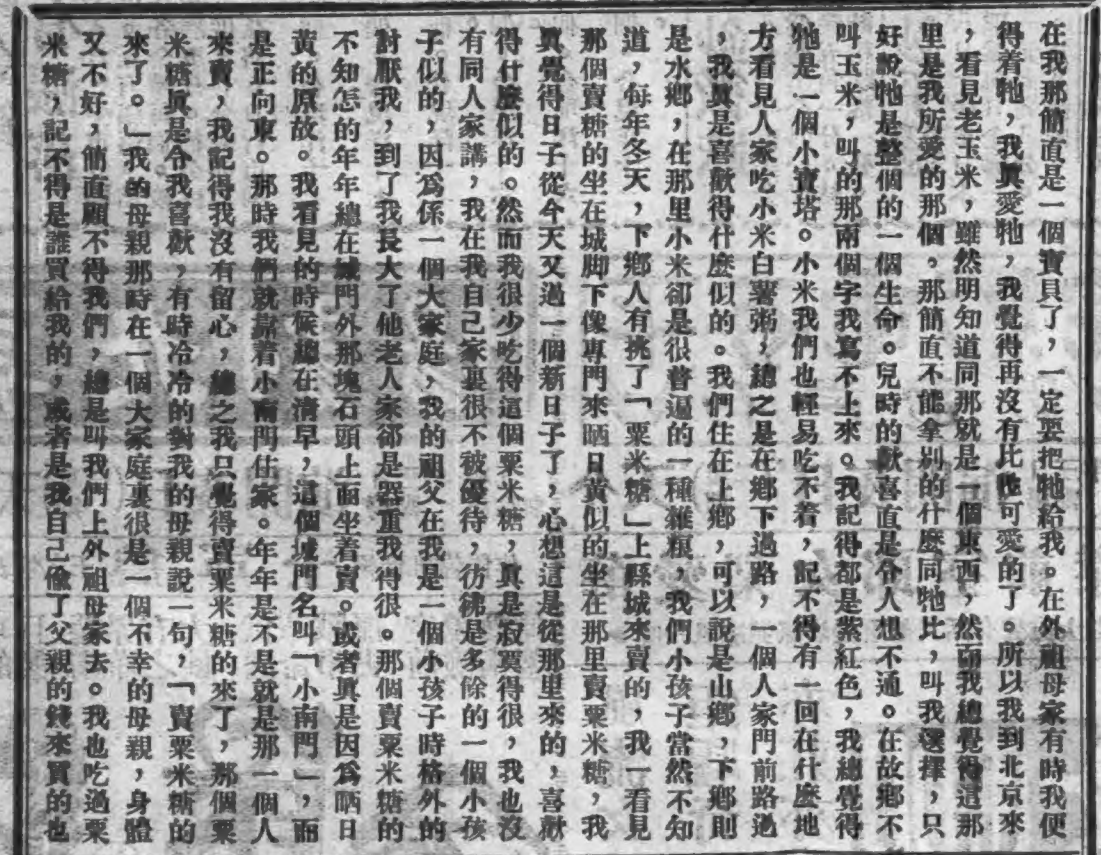 在我那簡直是一個寶貝了，一定要把牠給我。在外祖母家有時我便
得着牠，我眞愛牠，我覺得再沒有比牠可愛的了。所以我到北京來
，看見老玉米，雖然明知道同那就是一個東西，然而我總覺得這那
里是我所愛的那個。那簡直不能拿別的什麽同牠比，叫我選擇，只
好說牠是整個的一個生命。兒時的歡喜直是令人想不通。在故鄉不
叫玉米，叫的那兩個字我寫不上來。我記得都是紫紅色，我總覺得
牠是一個小寶塔。小米我們也輕易吃不着，記不得有一回在什麽地
方看見人家吃小米白薯粥，總之是在鄉下過路，一個人家門前路過
，我眞是喜歡得什麽似的。我們住在上鄉，可以說是山鄉，下鄉則
是水鄉，在那里小米卻是很普遍的一種雜粮，我們小孩子當然不知
道，每年冬天，下鄉人有挑了「粟米糖」上縣城來賣的，我一看見
那個賣糖的坐在城脚下像專門來晒日黃似的坐在那里賣粟米糖，我
眞覺得日子從今天又過一個新日子了，心想這是從那里來的，喜歡
得什麽似的。然而我很少吃得這個粟米糖，眞是寂寞得很，我也沒
有同人家講，我在我自己家裏很不被優待，彷彿是多餘的一個小孩
子似的，因爲係一個大家庭，我的祖父在我是一個小孩子時格外的
討厭我，到了我長大了他老人家卻是器重我得很。那個賣粟米糖的
不知怎的年年總在城門外那塊石頭上面坐着賣。或者眞是因爲晒日
黃的原故。我看見的時候總在清早，這個城門名叫「小南門」，面
是正向東。那時我們就靠着小南門住家。年年是不是就是那一個人
來賣，我記得我沒有留心，總之我只覺得賣粟米糖的來了，那個粟
米糖眞是令我喜歡，有時冷冷的對我的母親說一句，「賣粟米糖的
來了。」我的母親那時在一個大家庭裏很是一個不幸的母親，身體
又不好，簡直顧不得我們，總是叫我們上外祖母家去。我也吃過粟
米糖，記不得是誰買給我的，或者是我自己偷了父親的錢來買的也